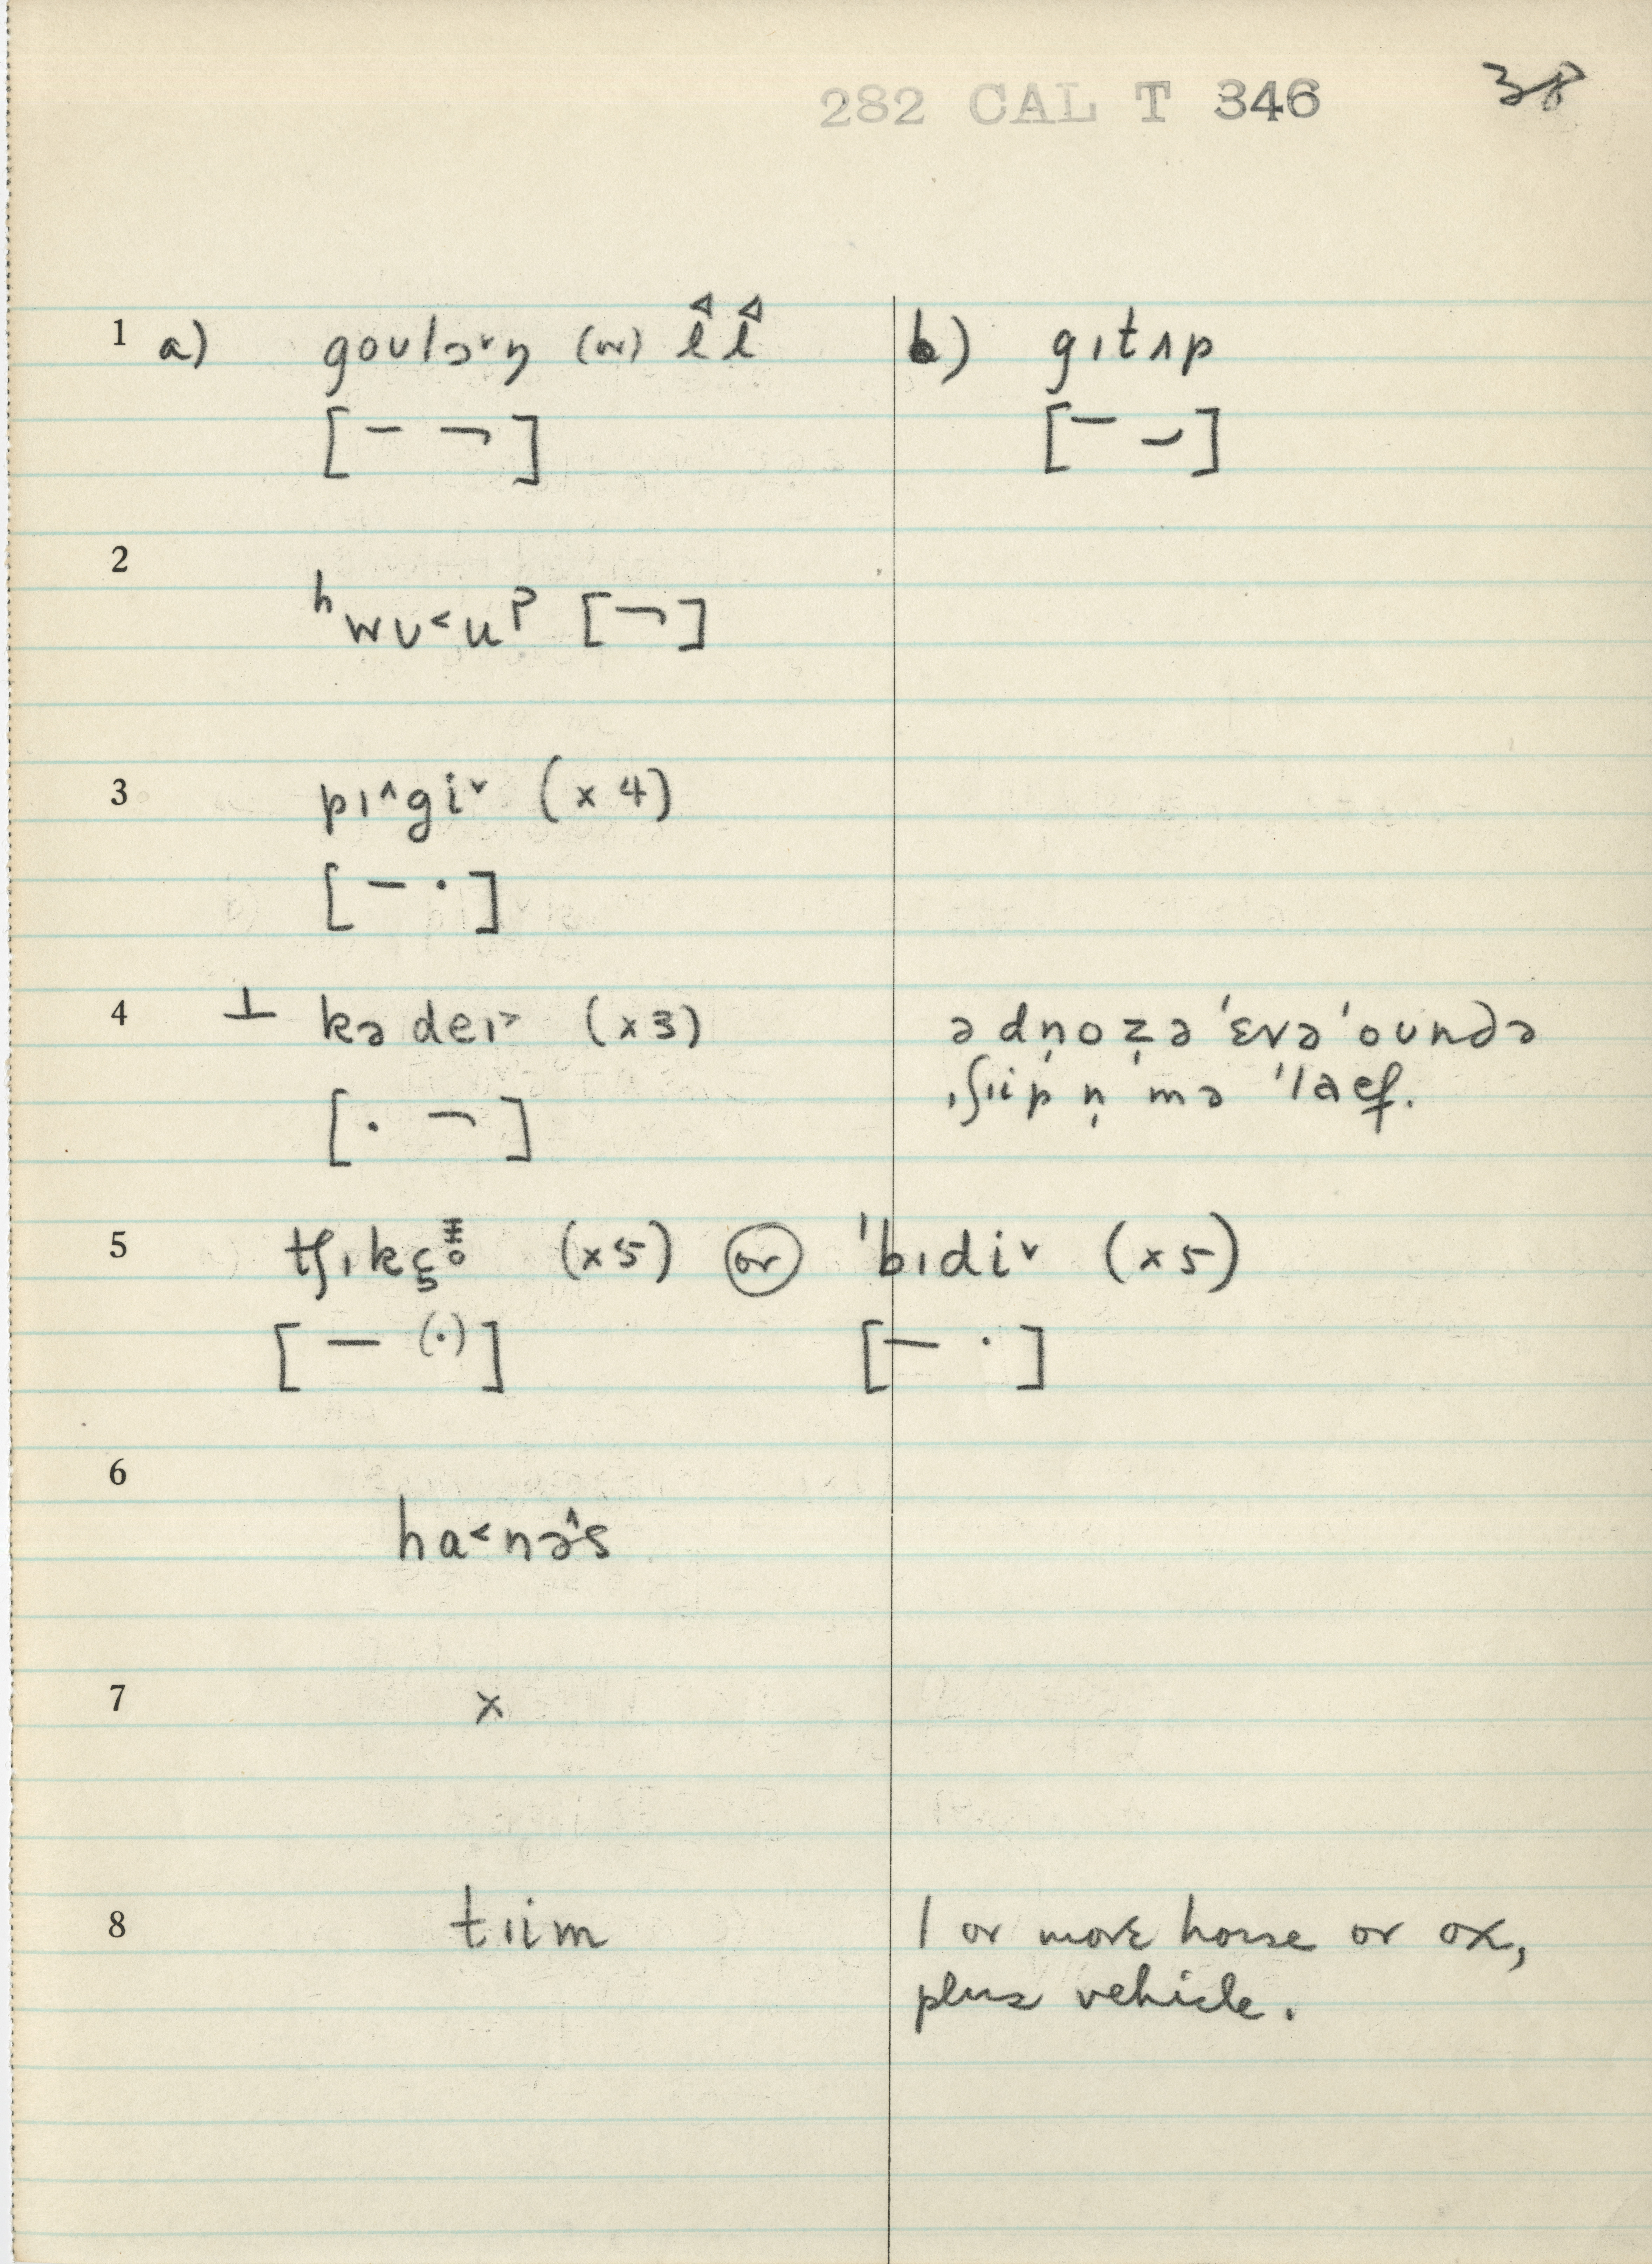 282 CAL T 346 38
1 a) goʊlɔ˅ŋ (or) l̂ l̂ b) gɪtʌp
[– ¬] [– ⌣]
2
ʰwʊ˂uᵖ [¬]
3 pɪ˄gi˅ (x 4)
[– ·]
4 ⊥ kədeɪ˃ (x3) ə dn̩oz̩ə 'ɛvə 'oʊndə
[· ¬] ˌʃɪip n̩ mə 'laɛf.
5 tʃɪkɛ (x5) or 'bɪdi˅ (x5)
[– (·)] [– ·]
6
ha˂nə˄s
7 x
8 tɪim 1 or more horse or ox,
plus vehicle.